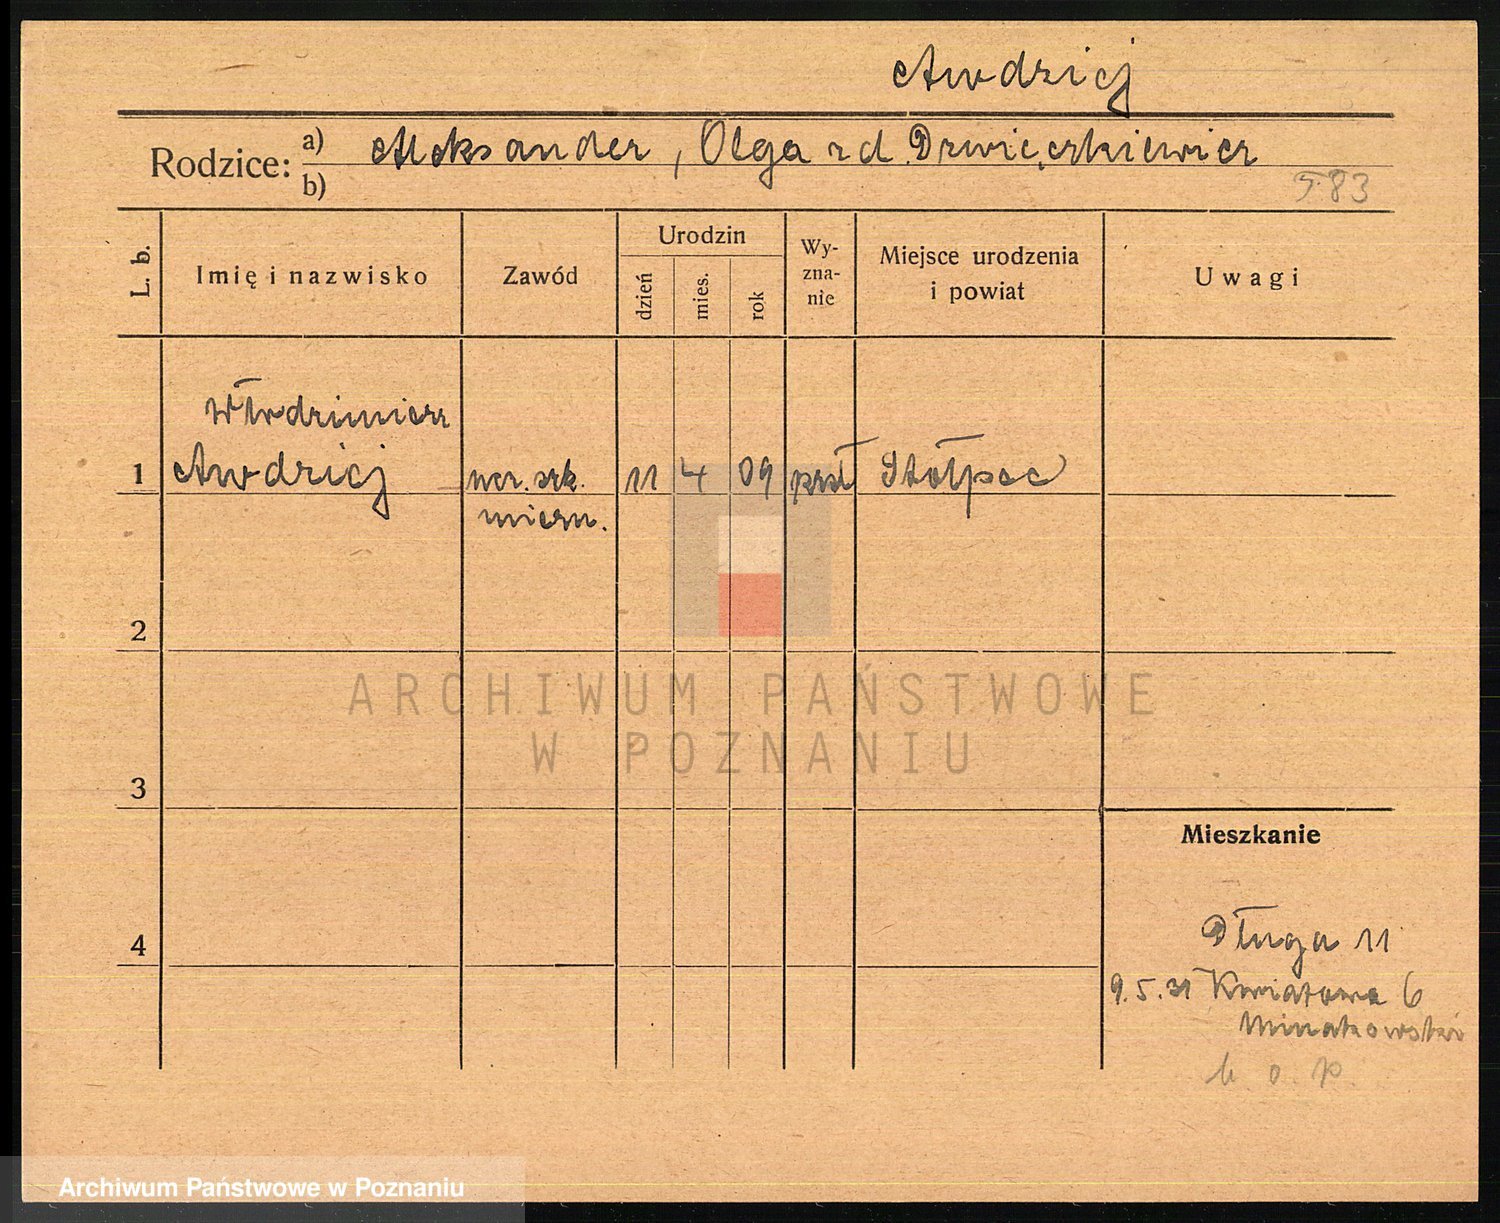 Awdziej
Rodzice: a) Aleksander, Olga z d. Dzwięczkiewicz
b)
583
L. b. Imię i nazwisko Zawód Urodzin dzień mies. rok Wy-zna-nie Miejsce urodzenia i powiat Uwagi
Włodzimierz
1 Awdziej ucz. szk. 11 4 09 prał Stołpce
miern.
2
ARCHIWUM PAŃSTWOWE
W POZNANIU
3
Mieszkanie
4 Długa 11
9.5.31 Kwiatowa 6
Minakowski
b. o. p.
Archiwum Państwowe w Poznaniu